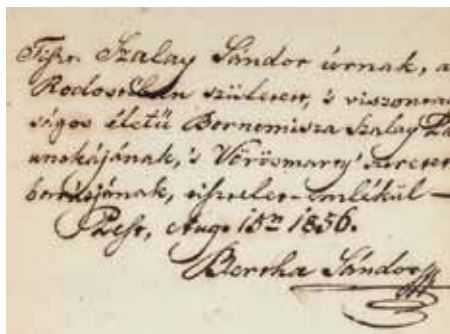 Tisz. Szalay Sándor úrnak, a
Rodostóban született, 's viszontag
ságos életű Bornemisza Szalay Pá
unokájának, 's Vörösmarty' szeretett
barátjának, tisztelet-emlékül —
Pest, Aug. 15én 1856.
Bertha Sándor